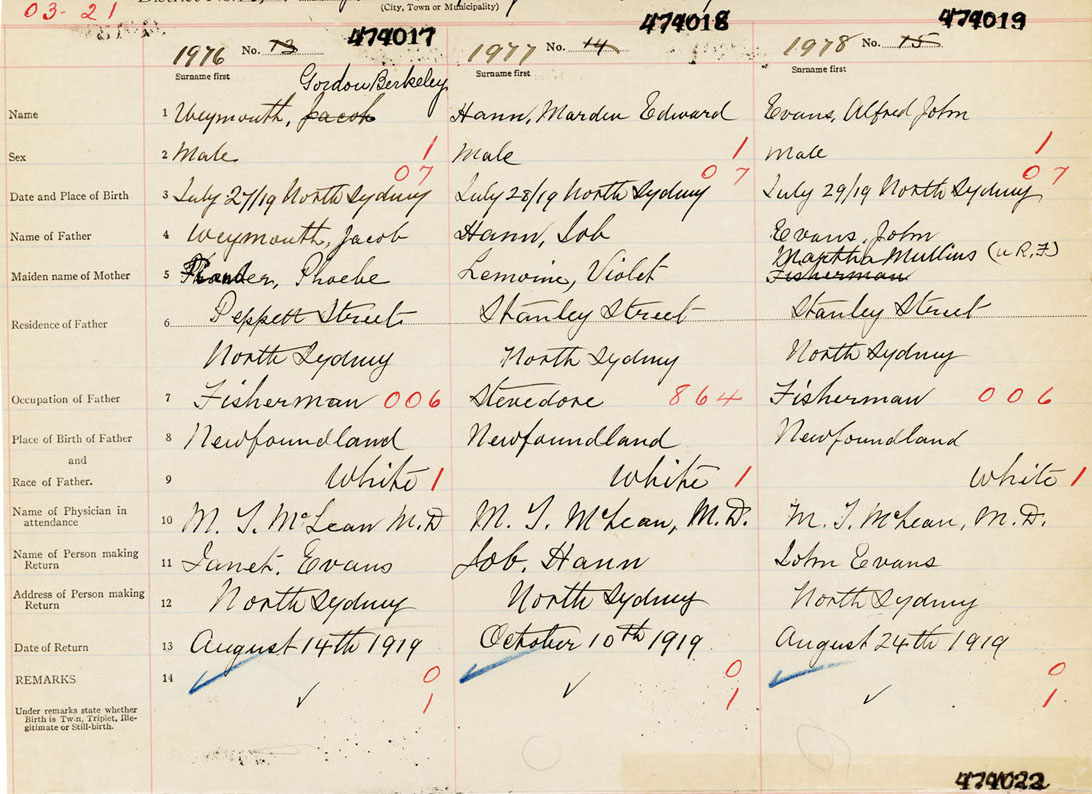 03-21
(City, Town or Municipality)
474017 474018 474019
1976 No. 13 1977 No. 14 1978 No. 15
Surname first Surname first Surname first
Gordon Berkeley
Name 1 Weymouth, Jacob Hann, Marden Edward Evans, Alfred John
Sex 2 Male 1 Male 1 Male 1
07 07 07
Date and Place of Birth 3 July 27/19 North Sydney July 28/19 North Sydney July 29/19 North Sydney
Name of Father 4 Weymouth, Jacob Hann, Job Evans, John
Martha Mullins
Maiden name of Mother 5 Phoebe Lemoine, Violet Fisherman
Residence of Father 6 Peppett Street Stanley Street Stanley Street
North Sydney North Sydney North Sydney
Occupation of Father 7 Fisherman 006 Stevedore 864 Fisherman 006
Place of Birth of Father 8 Newfoundland Newfoundland Newfoundland
and
Race of Father. 9 White 1 White 1 White 1
Name of Physician in
attendance 10 M. T. McLean M.D M. T. McLean, M.D. M. T. McLean, M.D.
Name of Person making
Return 11 Janet. Evans Job. Hann John Evans
Address of Person making
Return 12 North Sydney North Sydney North Sydney
Date of Return 13 August 14th 1919 October 10th 1919 August 24th 1919
REMARKS 14 0 0 0
1 1 1
Under remarks state whether
Birth is Twin, Triplet, Ille-
gitimate or Still-birth.
474022